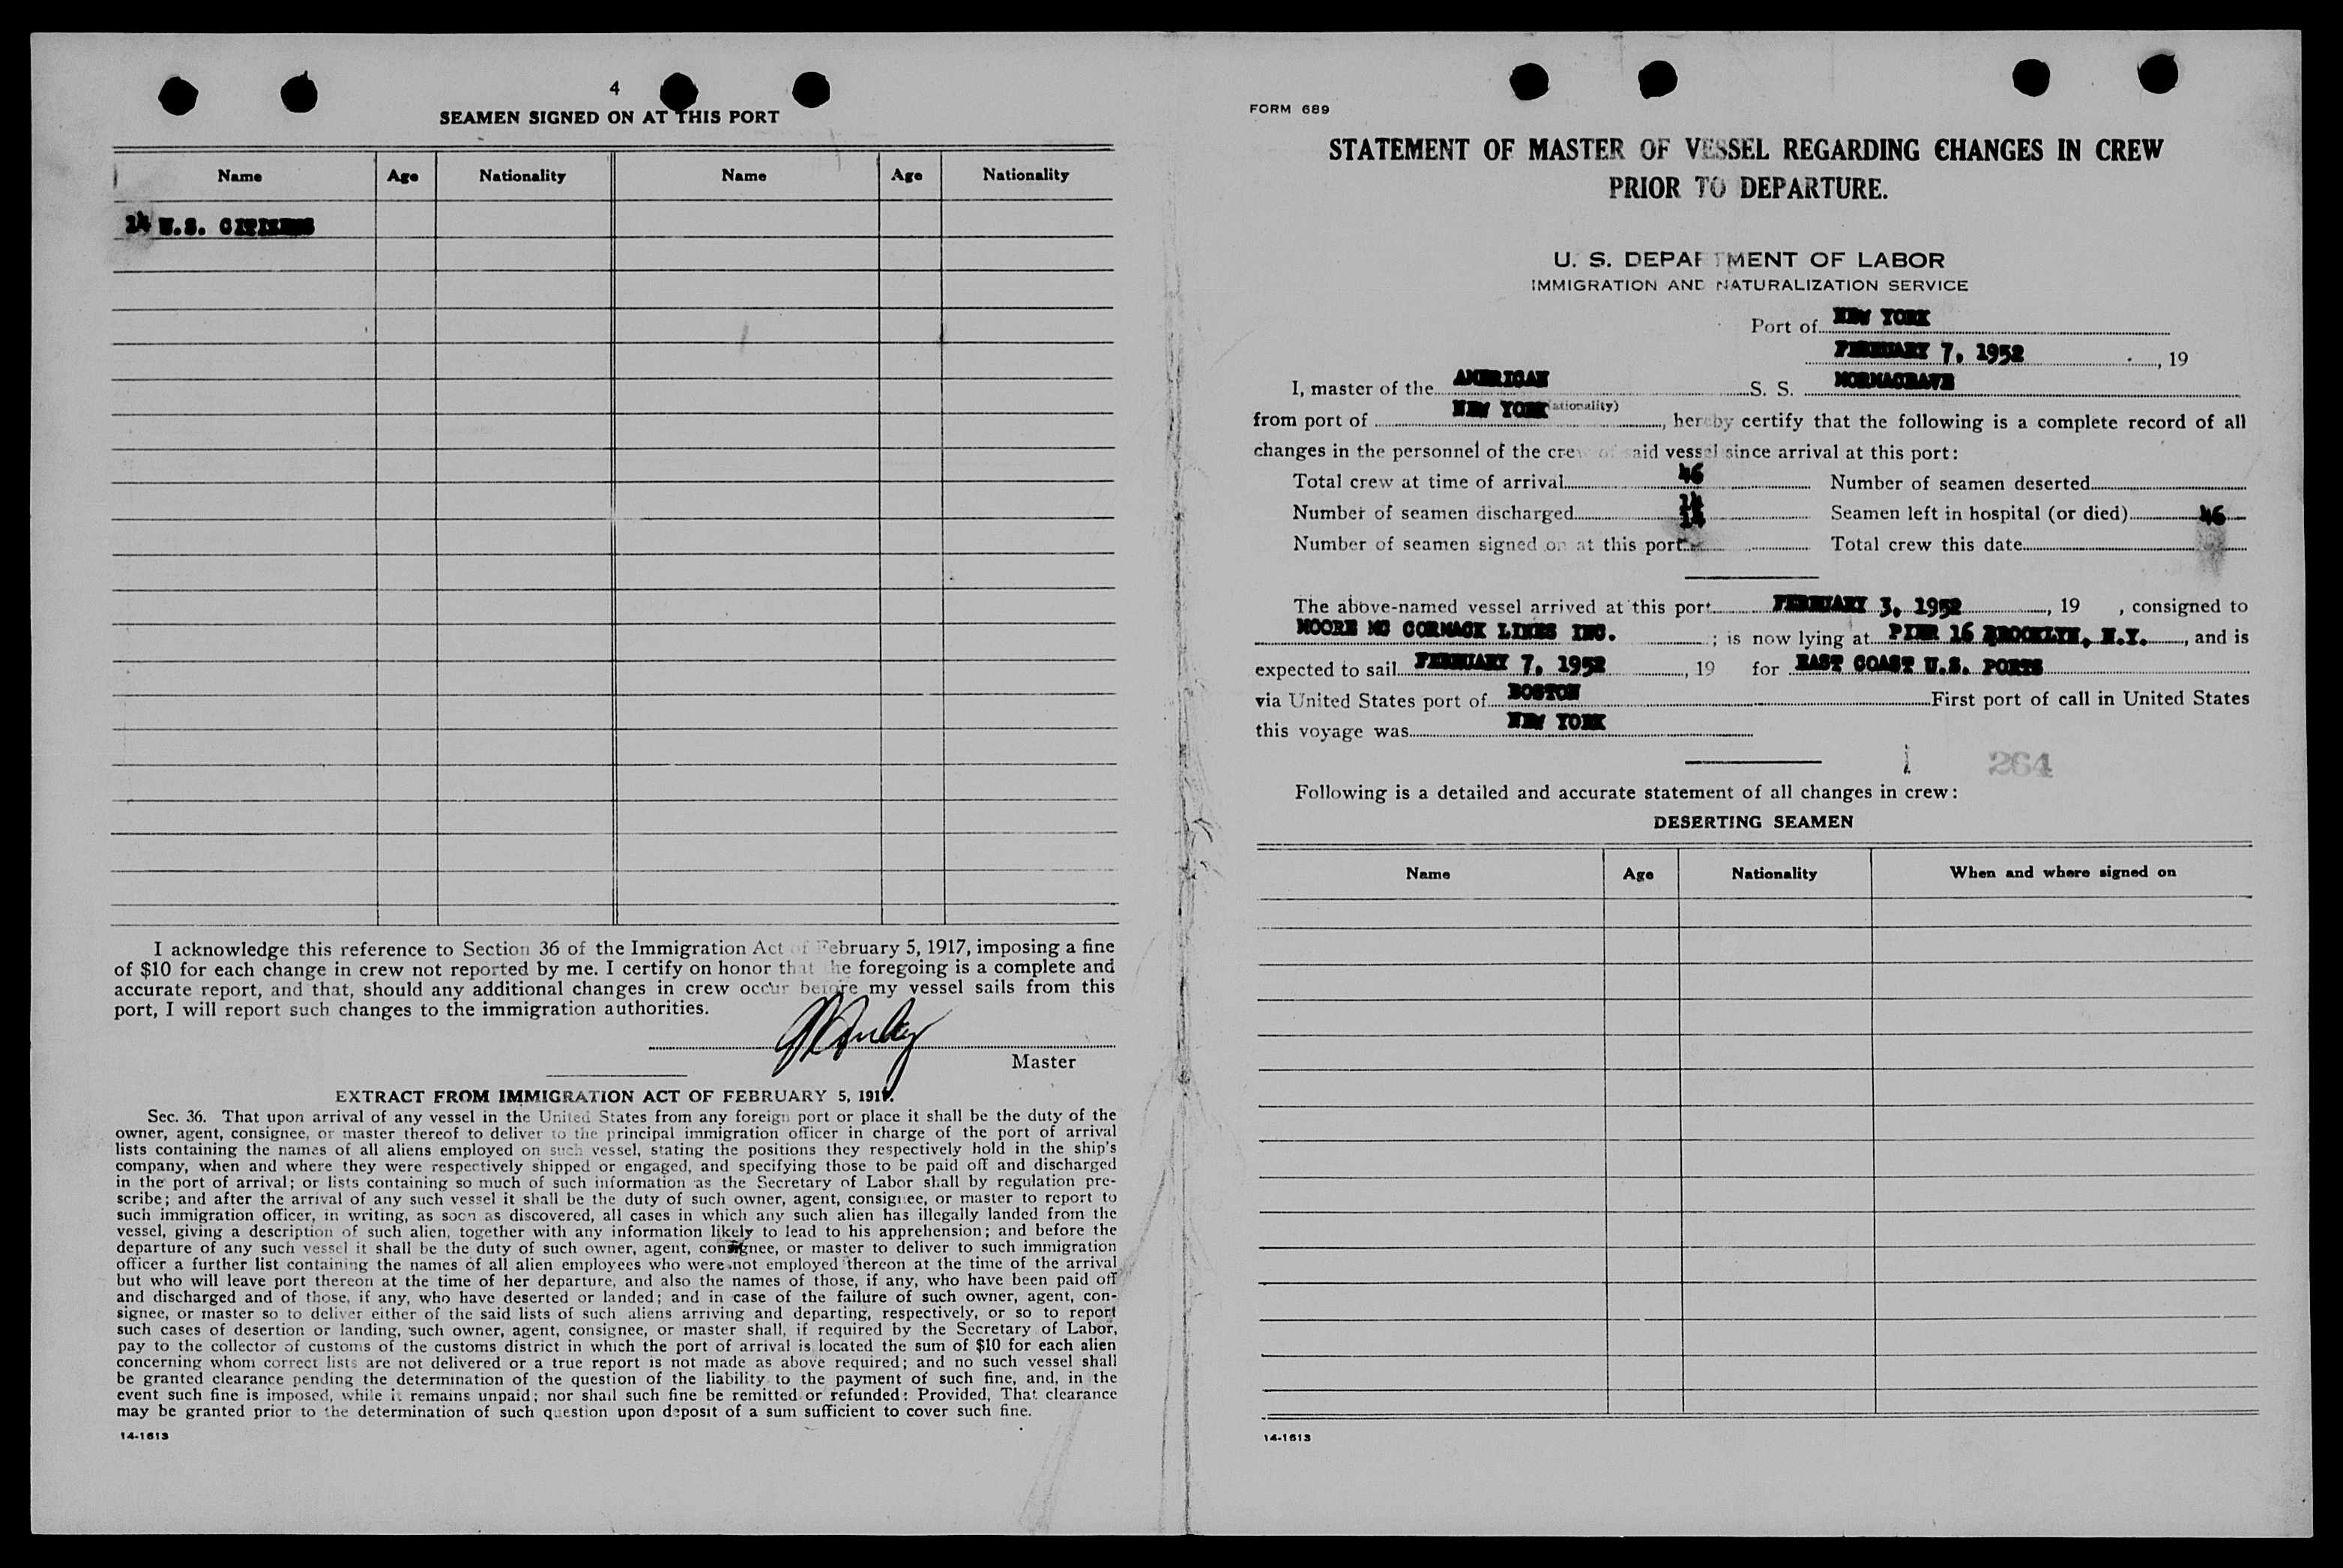 4
SEAMEN SIGNED ON AT THIS PORT
Name Age Nationality Name Age Nationality
14 U.S. CITIZENS
I acknowledge this reference to Section 36 of the Immigration Act of February 5, 1917, imposing a fine
of $10 for each change in crew not reported by me. I certify on honor that the foregoing is a complete and
accurate report, and that, should any additional changes in crew occur before my vessel sails from this
port, I will report such changes to the immigration authorities.
Master
EXTRACT FROM IMMIGRATION ACT OF FEBRUARY 5, 1917.
Sec. 36. That upon arrival of any vessel in the United States from any foreign port or place it shall be the duty of the
owner, agent, consignee, or master thereof to deliver to the principal immigration officer in charge of the port of arrival
lists containing the names of all aliens employed on such vessel, stating the positions they respectively hold in the ship's
company, when and where they were respectively shipped or engaged, and specifying those to be paid off and discharged
in the port of arrival; or lists containing so much of such information as the Secretary of Labor shall by regulation pre-
scribe; and after the arrival of any such vessel it shall be the duty of such owner, agent, consignee, or master to report to
such immigration officer, in writing, as soon as discovered, all cases in which any such alien has illegally landed from the
vessel, giving a description of such alien, together with any information likely to lead to his apprehension; and before the
departure of any such vessel it shall be the duty of such owner, agent, consignee, or master to deliver to such immigration
officer a further list containing the names of all alien employees who were not employed thereon at the time of the arrival
but who will leave port thereon at the time of her departure, and also the names of those, if any, who have been paid off
and discharged and of those, if any, who have deserted or landed; and in case of the failure of such owner, agent, con-
signee, or master so to deliver either of the said lists of such aliens arriving and departing, respectively, or so to report
such cases of desertion or landing, such owner, agent, consignee, or master shall, if required by the Secretary of Labor,
pay to the collector of customs of the customs district in which the port of arrival is located the sum of $10 for each alien
concerning whom correct lists are not delivered or a true report is not made as above required; and no such vessel shall
be granted clearance pending the determination of the question of the liability to the payment of such fine, and, in the
event such fine is imposed, while it remains unpaid; nor shall such fine be remitted or refunded: Provided, That clearance
may be granted prior to the determination of such question upon deposit of a sum sufficient to cover such fine.
14-1613
FORM 689
STATEMENT OF MASTER OF VESSEL REGARDING CHANGES IN CREW
PRIOR TO DEPARTURE.
U. S. DEPARTMENT OF LABOR
IMMIGRATION AND NATURALIZATION SERVICE
Port of NEW YORK
FEBRUARY 7, 1952, 19
I, master of the AMERICAN S. S. MORMACRAVE
(Nationality)
from port of NEW YORK, hereby certify that the following is a complete record of all
changes in the personnel of the crew of said vessel since arrival at this port:
Total crew at time of arrival 46 Number of seamen deserted
Number of seamen discharged 14 Seamen left in hospital (or died)
Number of seamen signed on at this port 14 Total crew this date 46
The above-named vessel arrived at this port FEBRUARY 3, 1952, 19 , consigned to
MOORE MC CORMACK LINES INC. ; is now lying at PIER 16 BROOKLYN, N.Y., and is
expected to sail FEBRUARY 7, 1952, 19 for EAST COAST U.S. PORTS
via United States port of BOSTON First port of call in United States
this voyage was NEW YORK
264
Following is a detailed and accurate statement of all changes in crew:
DESERTING SEAMEN
Name Age Nationality When and where signed on
14-1613